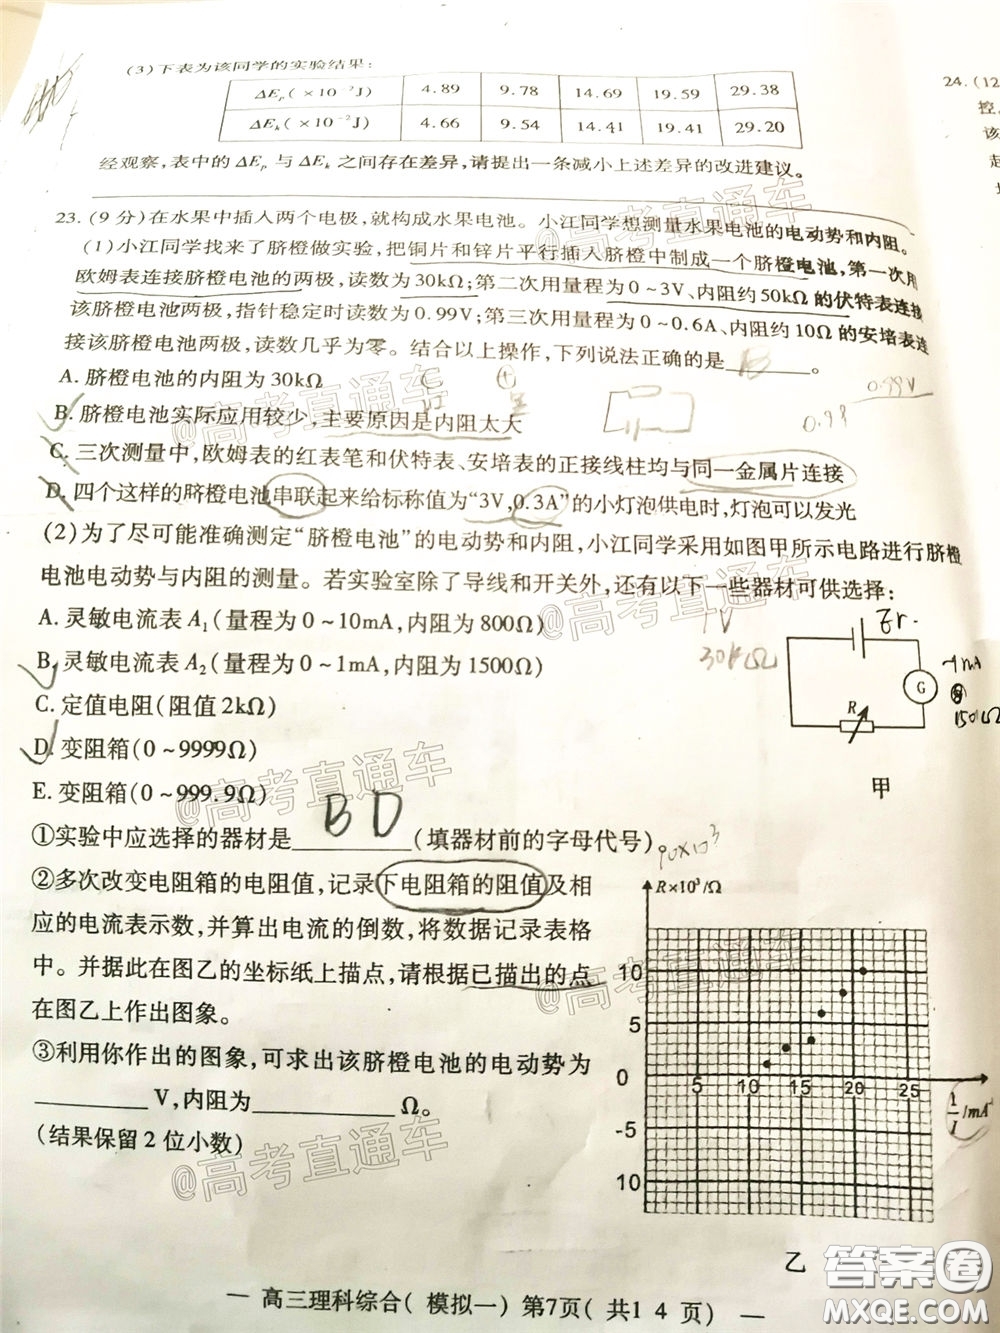 (3)下表为该同学的实验结果:
ΔEp(×10⁻²J) 4.89 9.78 14.69 19.59 29.38
ΔEk(×10⁻²J) 4.66 9.54 14.41 19.41 29.20
经观察,表中的 ΔEp 与 ΔEk 之间存在差异,请提出一条减小上述差异的改进建议。
23.(9 分)在水果中插入两个电极,就构成水果电池。小江同学想测量水果电池的电动势和内阻。
(1)小江同学找来了脐橙做实验,把铜片和锌片平行插入脐橙中制成一个脐橙电池,第一次用
欧姆表连接脐橙电池的两极,读数为30kΩ;第二次用量程为0~3V、内阻约50kΩ的伏特表连接
该脐橙电池两极,指针稳定时读数为0.99V;第三次用量程为0~0.6A、内阻约10Ω的安培表连
接该脐橙电池两极,读数几乎为零。结合以上操作,下列说法正确的是______。
A. 脐橙电池的内阻为30kΩ
B. 脐橙电池实际应用较少,主要原因是内阻太大
C. 三次测量中,欧姆表的红表笔和伏特表、安培表的正接线柱均与同一金属片连接
D. 四个这样的脐橙电池串联起来给标称值为“3V,0.3A”的小灯泡供电时,灯泡可以发光
0.99V
(2)为了尽可能准确测定“脐橙电池”的电动势和内阻,小江同学采用如图甲所示电路进行脐橙
电池电动势与内阻的测量。若实验室除了导线和开关外,还有以下一些器材可供选择:
A. 灵敏电流表 A₁(量程为 0~10mA,内阻为 800Ω)
B. 灵敏电流表 A₂(量程为 0~1mA,内阻为1500Ω)
C. 定值电阻(阻值2kΩ)
D. 变阻箱(0~9999Ω)
E. 变阻箱(0~999.9Ω)
1V
30kΩ
Er.
G
1mA
1500Ω
R
甲
①实验中应选择的器材是BD(填器材前的字母代号)。
②多次改变电阻箱的电阻值,记录下电阻箱的阻值及相
应的电流表示数,并算出电流的倒数,将数据记录表格
中。并据此在图乙的坐标纸上描点,请根据已描出的点
在图乙上作出图象。
③利用你作出的图象,可求出该脐橙电池的电动势为
______V,内阻为______Ω。
(结果保留2位小数)
R×10³/Ω
10
5
0 5 10 15 20 25
-5
10
1/I /mA⁻¹
乙
— 高三理科综合( 模拟一) 第7页( 共1 4 页) —
24.(12
控
该
起
@高考直通车
@高考直通车
@高考直通车
@高考直通车
@高考直通车
@高考直通车
@高考直通车
答案卷
MXQE.COM